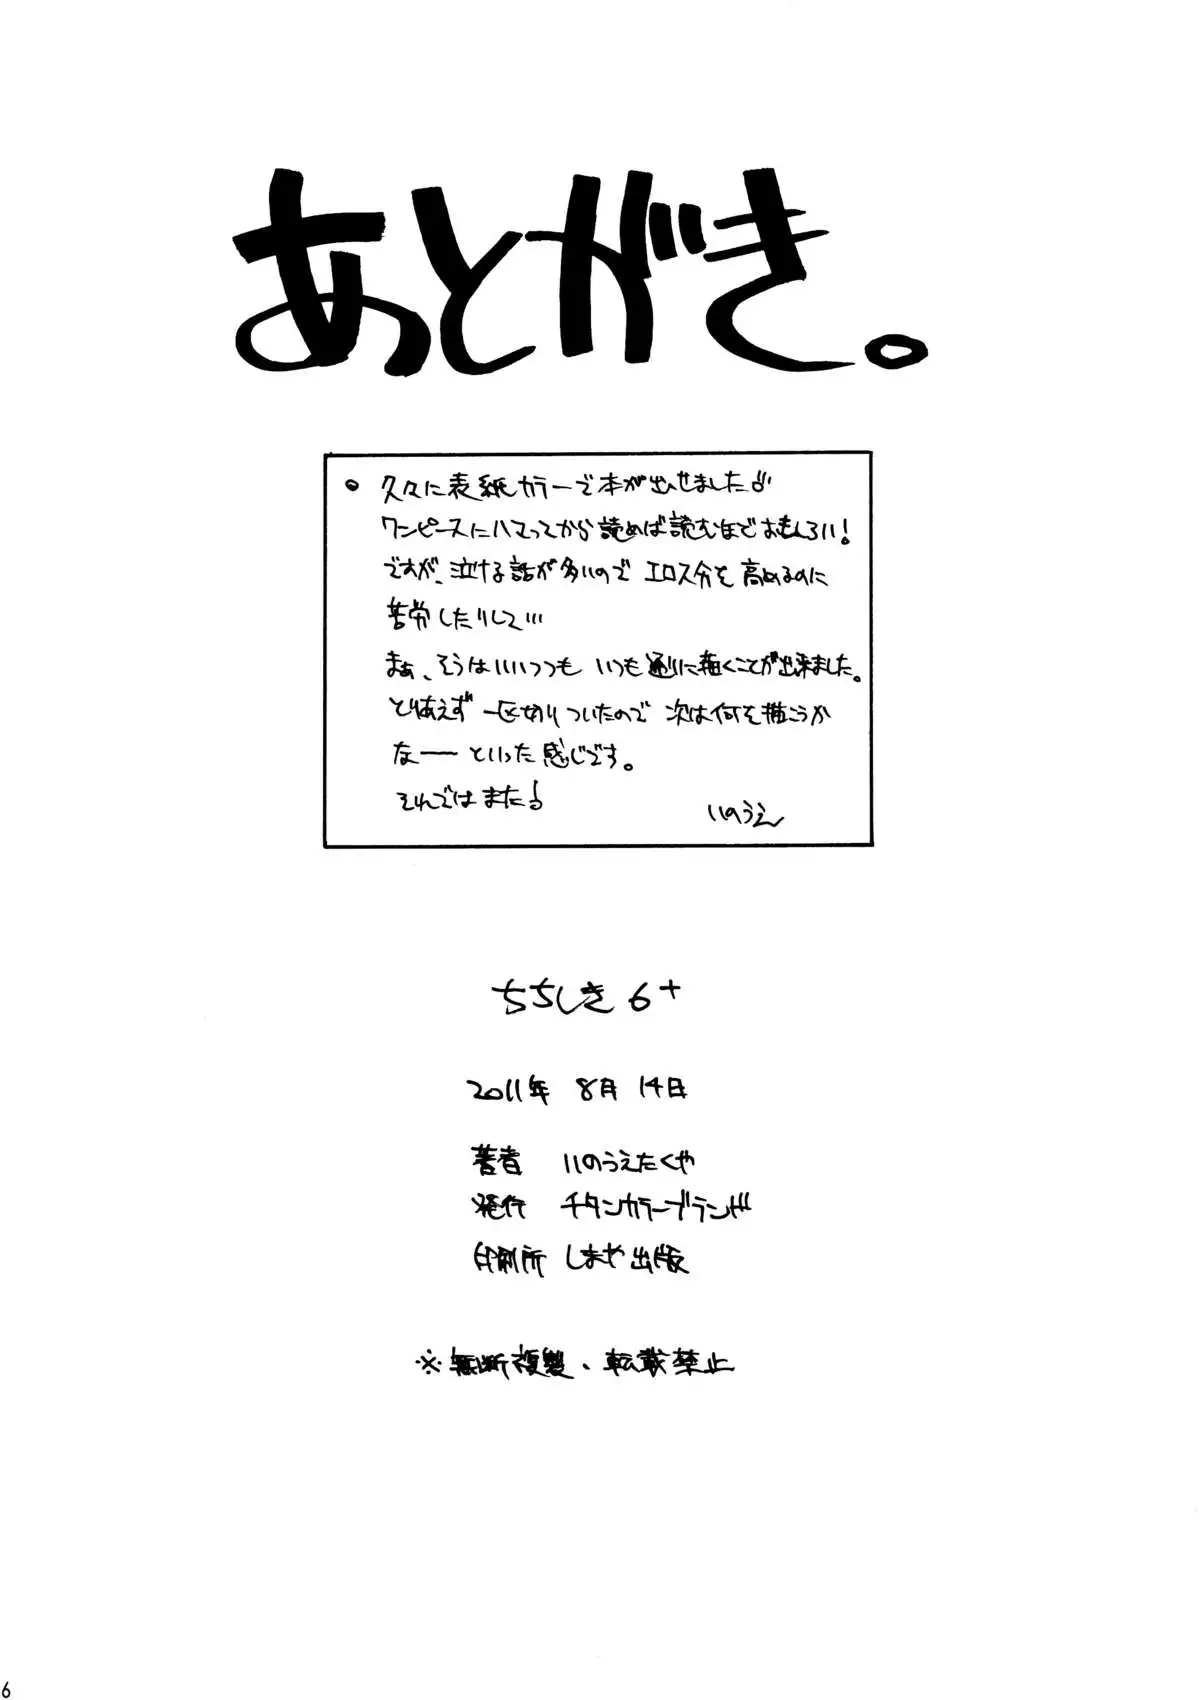 あとがき。
。久々に表紙カラーで本が出せました♪
ワンピースにハマってから読めば読むほどおもしろい!
ですが、泣ける話が多いのでエロス分を高めるのに
苦労したりして…
まぁ、そうはいいつつもいつも通りに描くことが出来ました。
とりあえず一区切りついたので次は何を描こうか
なーーといった感じです。
それではまた♪
いのうえ
ちちしき6+
2011年 8月 14日
著者 いのうえたくや
発行 チタンカラーブランド
印刷所 しまや出版
※無断複製、転載禁止
6